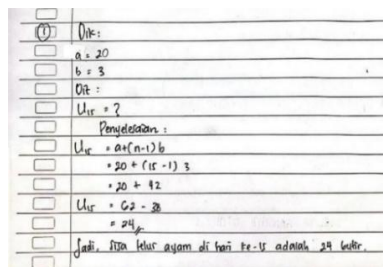 ① Dik:
a = 20
b = 3
Dit :
U₁₅ = ?
Penyelesaian :
U₁₅ = a+(n-1) b
= 20 + (15 -1) 3
= 20 + 42
U₁₅ = 62 - 38
= 24
Jadi, sisa telur ayam di hari ke-15 adalah 24 butir.